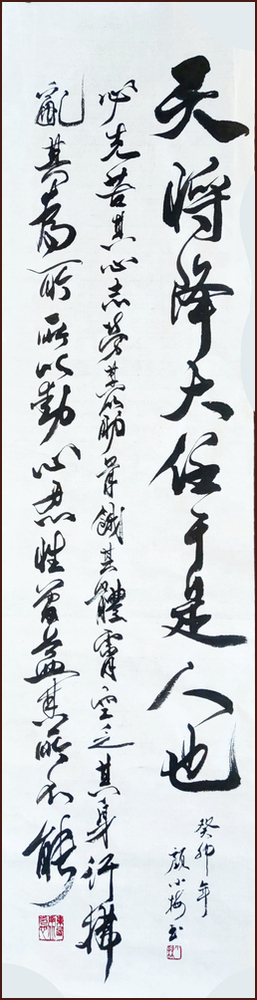 天将降大任于是人也
必先苦其心志劳其筋骨餓其體膚空乏其身行拂
亂其為所所以動心忍性曾益其所不能
癸卯年
小梅书